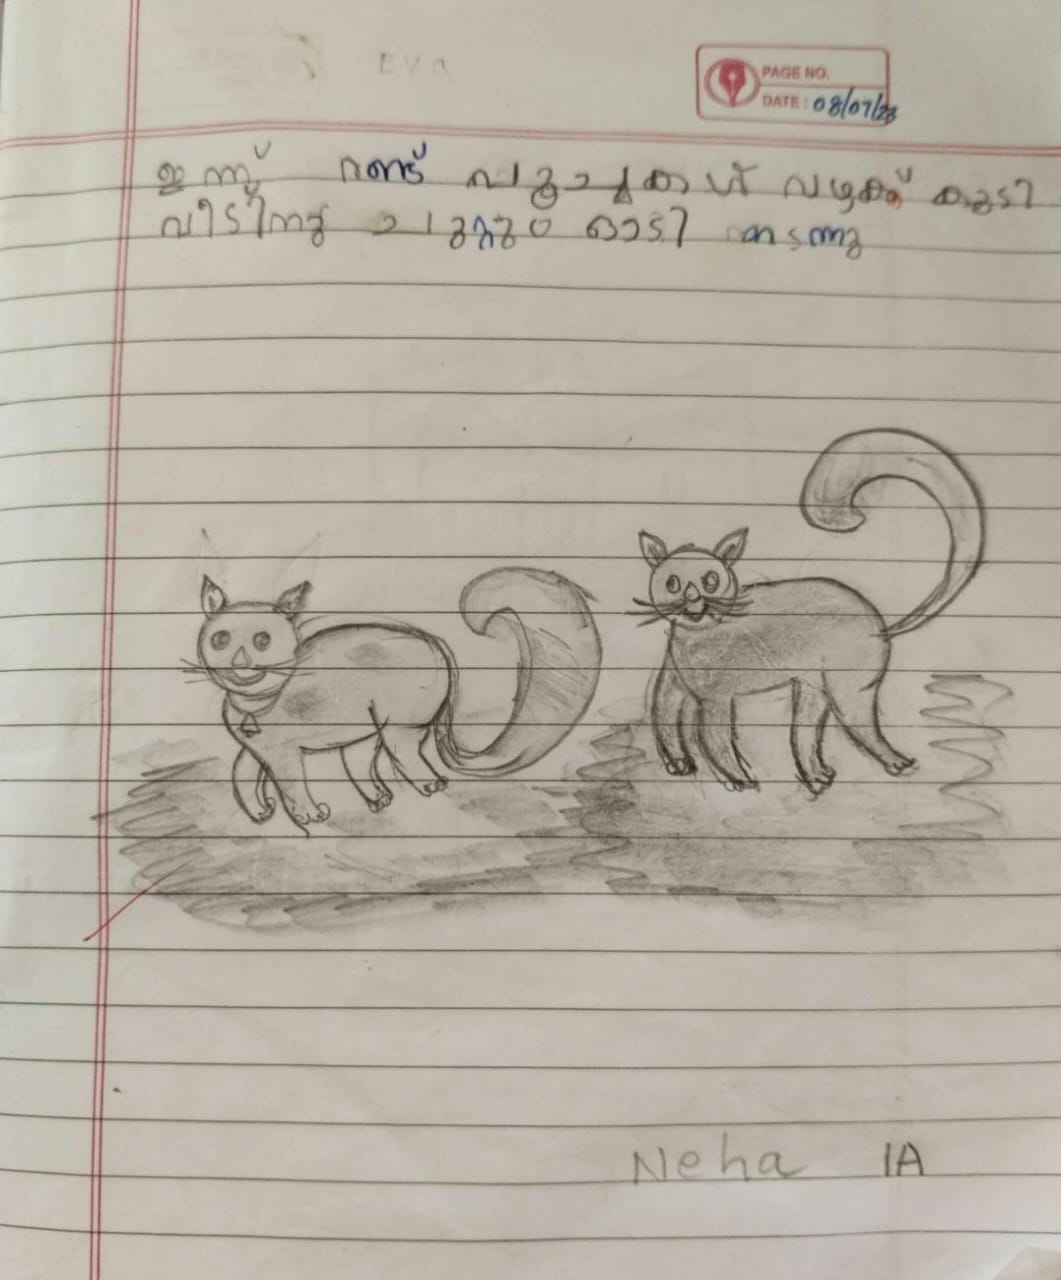 Eva
PAGE NO.
DATE: 08/07/23
ഇന്ന് രണ്ട് പൂച്ചകൾ വഴക്ക് കൂടി
വീടിനു ചുറ്റും ഓടി നടന്നു
Neha 1A